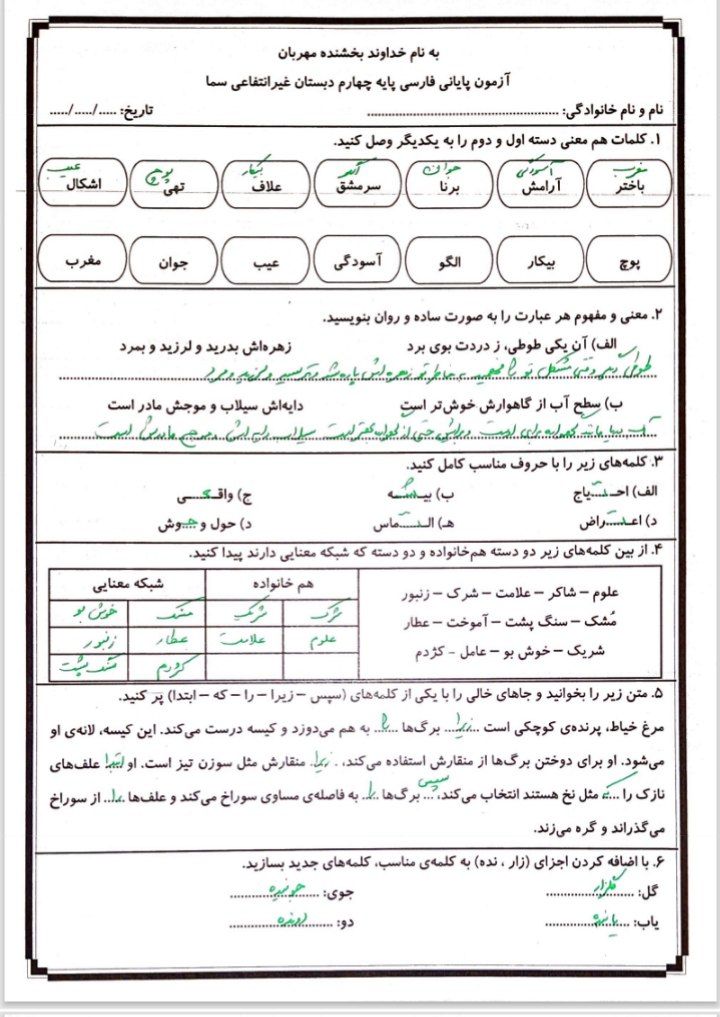 به نام خداوند بخشنده مهربان
آزمون پایانی فارسی پایه چهارم دبستان غیرانتفاعی سما
نام و نام خانوادگی: ........................ تاریخ: ...../...../.....
۱. کلمات هم معنی دسته اول و دوم را به یکدیگر وصل کنید.
مغرب آسودگی جوان الگو بیکار پوچ عیب
باختر آرامش برنا سرمشق علاف تهی اشکال
پوچ بیکار الگو آسودگی عیب جوان مغرب
۲. معنی و مفهوم هر عبارت را به صورت ساده و روان بنویسید.
الف) آن یکی طوطی، ز دردت بوی برد زهره‌اش بدرید و لرزید و بمرد
طوطی وقتی مشکل تو را فهمید به خاطر تو زهره اش پاره شد و ترسید و لرزید و مرد
ب) سطح آب از گاهوارش خوش‌تر است دایه‌اش سیلاب و موجش مادر است
سیلاب دایه اش و موج مادرش است
۳. کلمه‌های زیر را با حروف مناسب کامل کنید.
الف) احـ..تـ..یاج ب) بیـ..شـ..ه ج) واقـ..عـ..ی
د) اعـ..تـ..راض هـ) الـ..تـ..ماس د) حول و حـوش
۴. از بین کلمه‌های زیر دو دسته هم‌خانواده و دو دسته که شبکه معنایی دارند پیدا کنید.
علوم – شاکر – علامت – شرک – زنبور
مُشک – سنگ پشت – آموخت – عطار
شریک – خوش بو – عامل - کژدم
هم خانواده شبکه معنایی
شرک شریک مشک خوش بو
علوم علامت عطار زنبور
کژدم سنگ پشت
۵. متن زیر را بخوانید و جاهای خالی را با یکی از کلمه‌های (سپس – زیرا – را – که – ابتدا) پر کنید.
مرغ خیاط، پرنده‌ی کوچکی است ..زیرا.. برگ‌ها ..را.. به هم می‌دوزد و کیسه درست می‌کند. این کیسه، لانه‌ی او
می‌شود. او برای دوختن برگ‌ها از منقارش استفاده می‌کند، ..زیرا.. منقارش مثل سوزن تیز است. او ابتدا علف‌های
نازک را ..که.. مثل نخ هستند انتخاب می‌کند، ..سپس.. برگ‌ها ..را.. به فاصله‌ی مساوی سوراخ می‌کند و علف‌ها ..را.. از سوراخ
می‌گذراند و گره می‌زند.
۶. با اضافه کردن اجزای (زار ، نده) به کلمه‌ی مناسب، کلمه‌های جدید بسازید.
گل: ....گلزار.... جوی: ....جوینده....
یاب: ....یابنده.... دو: ....دونده....